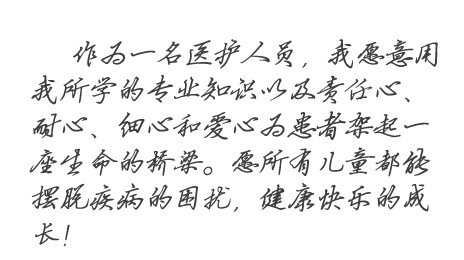 作为一名医护人员，我愿意用
我所学的专业知识以及责任心、
耐心、细心和爱心为患者架起一
座生命的桥梁。愿所有儿童都能
摆脱疾病的困扰，健康快乐的成
长！